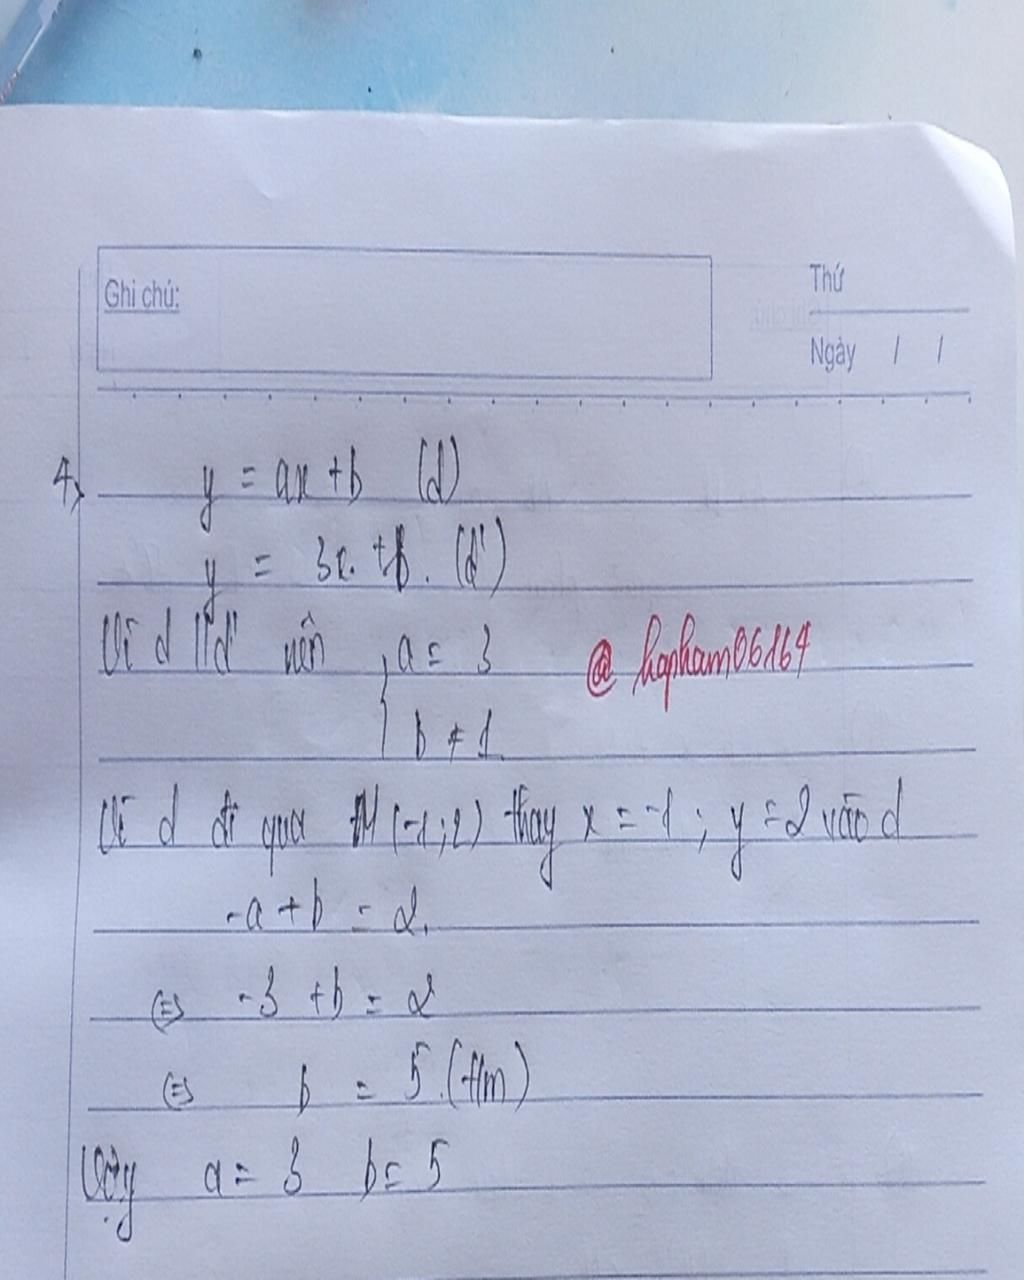 Ghi chú:
Thứ
Ngày / /
4, y = ax + b (d)
y = 3x + . (d')
Vì d // d' nên a = 3
@ hapham06164
b ≠ 1
Vì d đi qua M (-1; 2) thay x = -1 ; y = 2 vào d
-a + b = 2.
⇔ -3 + b = 2
⇔ b = 5. (t/m)
Vậy a = 3 b = 5